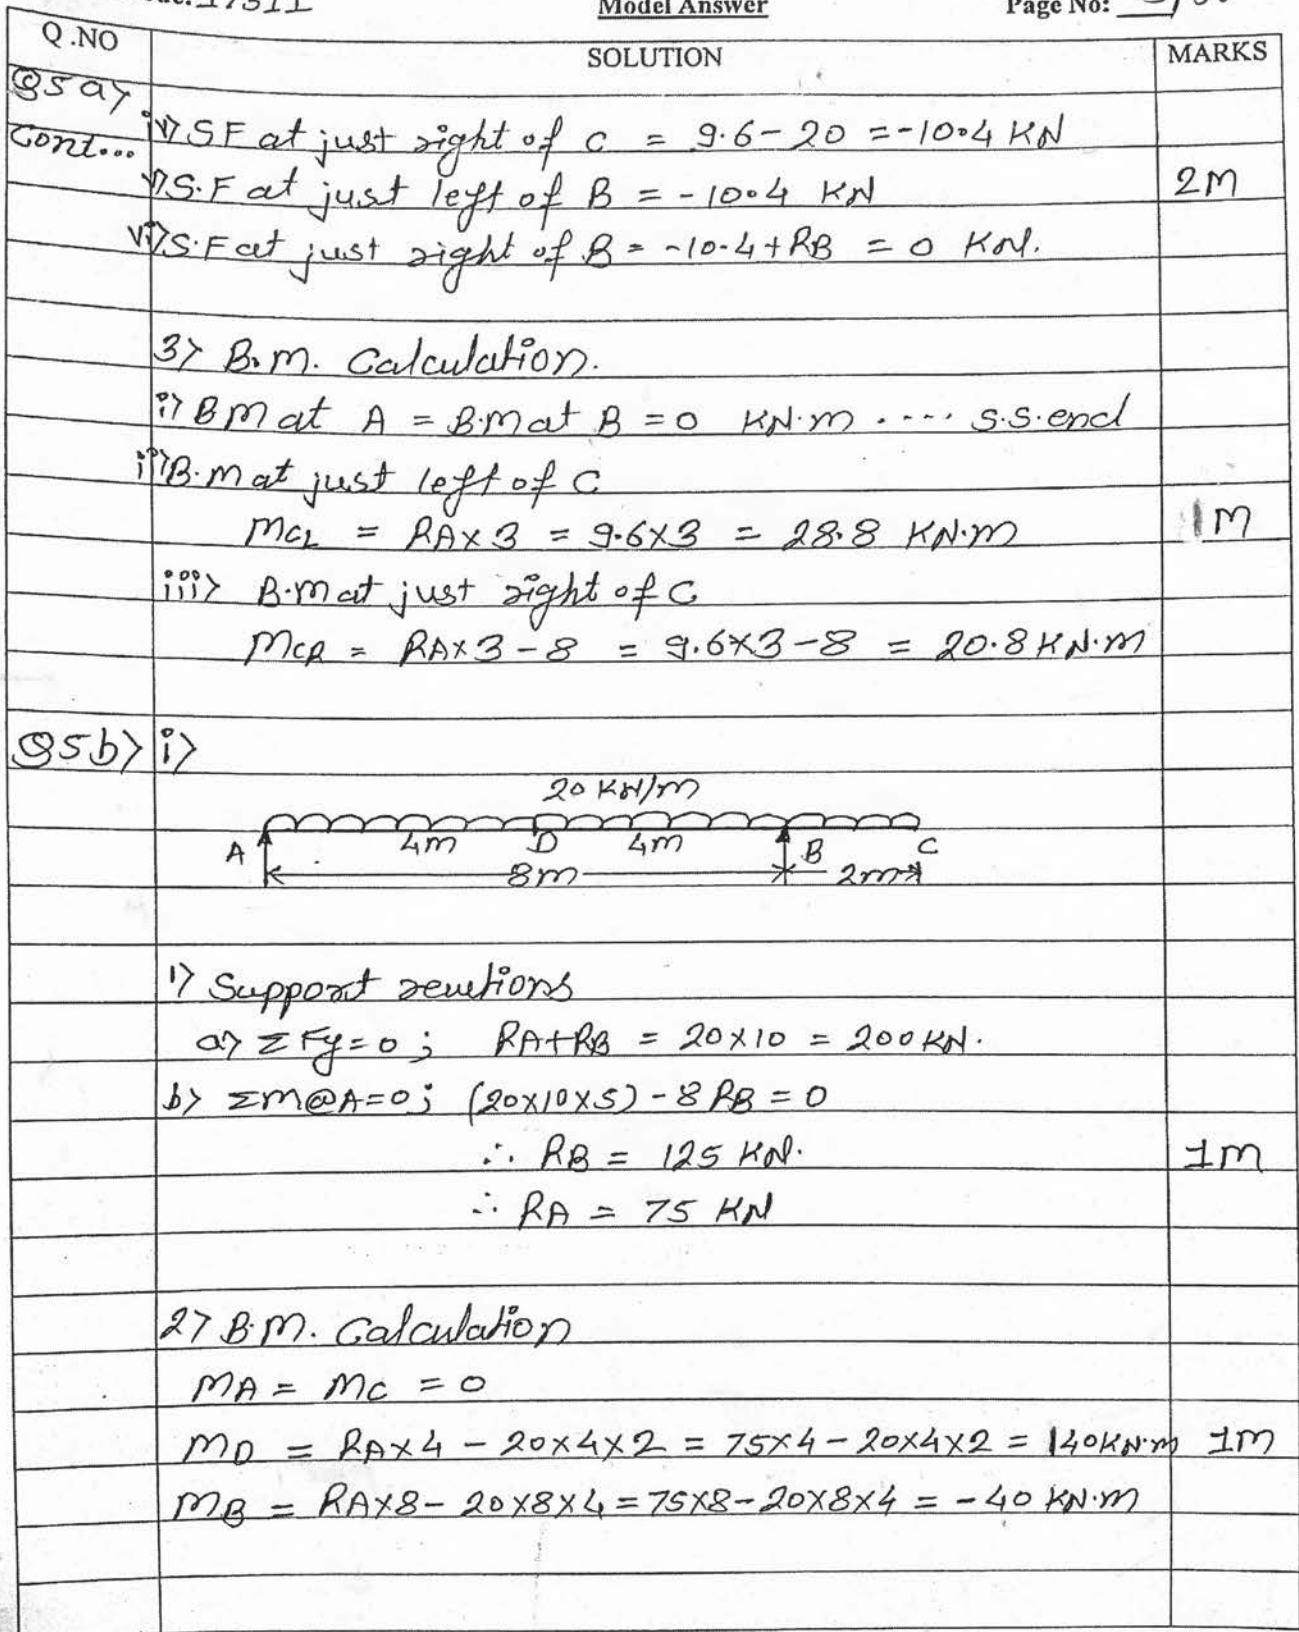 17311 Model Answer Page No:
Q.NO SOLUTION MARKS
Q5 a)
Cont... iv) SF at just right of C = 9.6 - 20 = -10.4 KN
v) S.F at just left of B = -10.4 KN 2M
vi) S.F at just right of B = -10.4 + RB = 0 KN.
3) B.M. Calculation.
i) BM at A = B.M at B = 0 KN.m .---- S.S.end
ii) B.M at just left of C
MCL = RA×3 = 9.6×3 = 28.8 KN.m 1M
iii) B.M at just right of C
MCR = RA×3 - 8 = 9.6×3 - 8 = 20.8 KN.m
Q5b) i)
20 KN/m
A 4m D 4m B C
8m 2m
1) Support reactions
a) ΣFy=0 ; RA+RB = 20×10 = 200 KN.
b) Σm@A=0 ; (20×10×5) - 8 RB = 0
∴ RB = 125 KN. 1M
∴ RA = 75 KN
2) B.M. Calculation
MA = MC = 0
MD = RA×4 - 20×4×2 = 75×4 - 20×4×2 = 140 KN.m 1M
MB = RA×8 - 20×8×4 = 75×8 - 20×8×4 = -40 KN.m